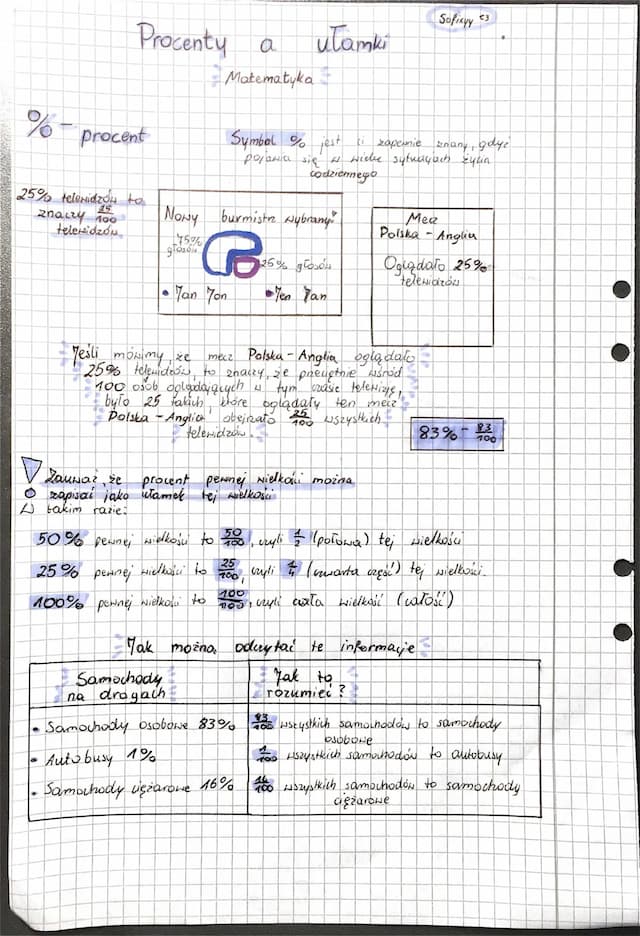 Sofixyy <3
Procenty a ułamki
Matematyka
% - procent
Symbol % jest ci zapewnie znany, gdyż
pojawia się w wielu sytuacjach życia
codziennego
25% telewidzów to
znaczy 25/100
telewidzów
Nowy burmistrz wybrany!
75% głosów
25% głosów
• Jan Jon • Jen Jan
Mecz
Polska - Anglia
Oglądało 25%
telewidzów
Jeśli mówimy, że mecz Polska - Anglia oglądało
25% telewidzów, to znaczy, że pneuętnie wśród
100 osób oglądających w tym czasie telewizję,
było 25 takich, które oglądały ten mecz
Polska - Anglia obejrzało 25/100 wszystkich
telewidzów.
83% - 83/100
Zauważ, że procent pewnej wielkości można
zapisać jako ułamek tej wielkości
W takim razie:
50% pewnej wielkości to 50/100, czyli 1/2 (połowa) tej wielkości
25% pewnej wielkości to 25/100, czyli 1/4 (czwarta część) tej wielkości.
100% pewnej wielkości to 100/100, czyli cała wielkość (całość)
Jak można odczytać te informacje
Samochody
na drogach
Jak to
rozumieć?
• Samochody osobowe 83%
83/100 wszystkich samochodów to samochody
osobowe
• Autobusy 1%
1/100 wszystkich samochodów to autobusy
• Samochody ciężarowe 16%
16/100 wszystkich samochodów to samochody
ciężarowe